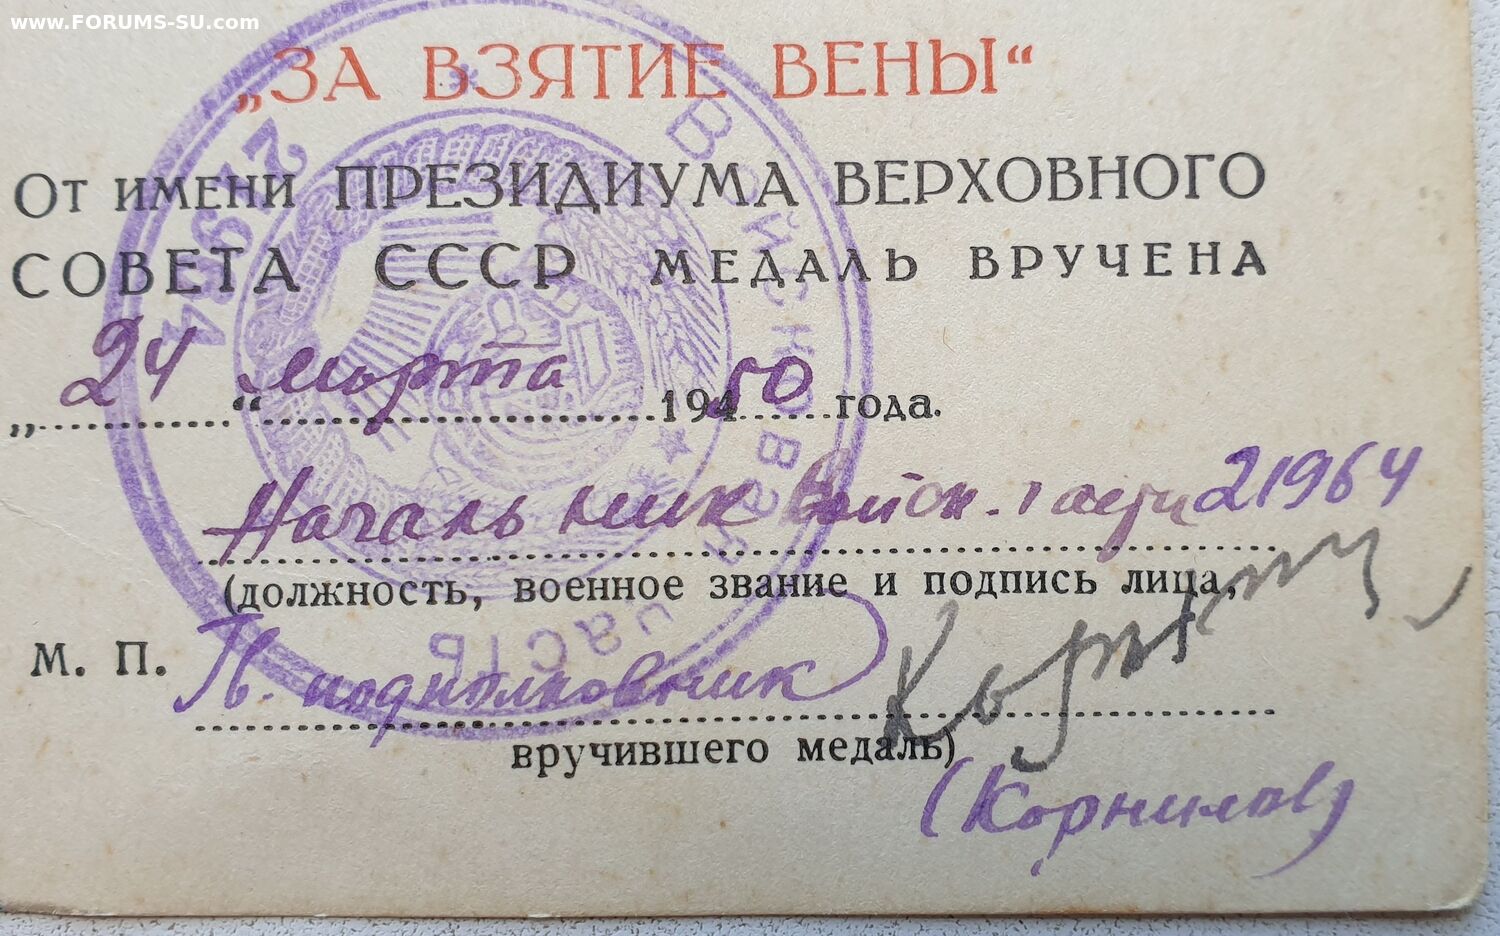 www.FORUMS-SU.com
„ЗА ВЗЯТИЕ ВЕНЫ“
От имени ПРЕЗИДИУМА ВЕРХОВНОГО
СОВЕТА СССР МЕДАЛЬ ВРУЧЕНА
„24“ марта 194 50 года.
Начальник Войск. части 21964
(должность, военное звание и подпись лица,
М. П. подполковник
вручившего медаль)
(Корнилов)
Войсковая часть
21964